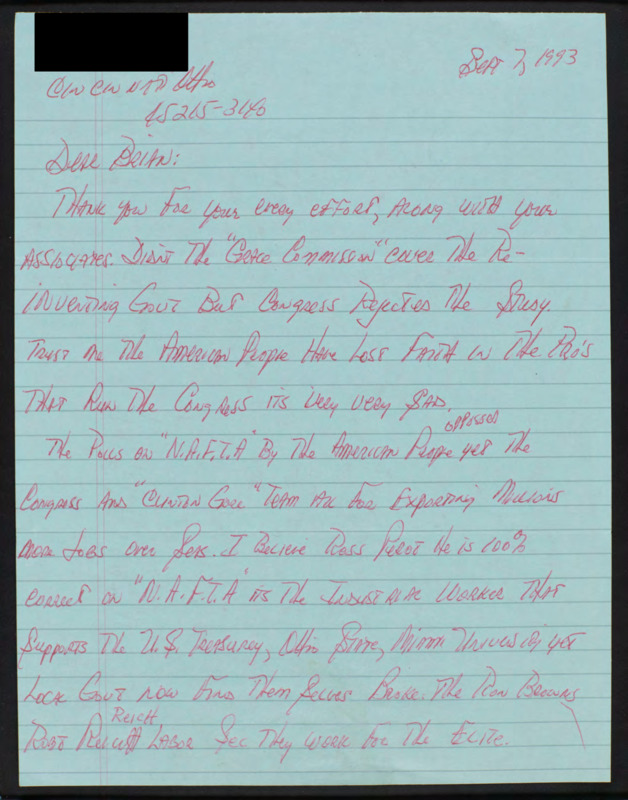 Sept 7, 1993
Cincinnati Ohio
45215-3140
Dear Brian:
Thank you for your every effort, along with your
associates. Didn't the "Grace Commission" cover the Re-
inventing Govt But Congress Rejected The Study.
Trust me the American People Have Lost Faith in The Pro's
That Run The Congress its very very sad.
The Polls on "N.A.F.T.A" By The American People opposed yet the
Congress and "Clinton Gore" Team all For Exporting Millions
more Jobs over Seas. I Believe Ross Perot He is 100%
correct on "N.A.F.T.A" its The Industrial Worker That
Supports The U.S. Treasurey, Ohio State, Miami University yet
Local Govt now Find Them Selves Broke. The Ron Browns
Robt Reich Labor Sec They work For The Elite.